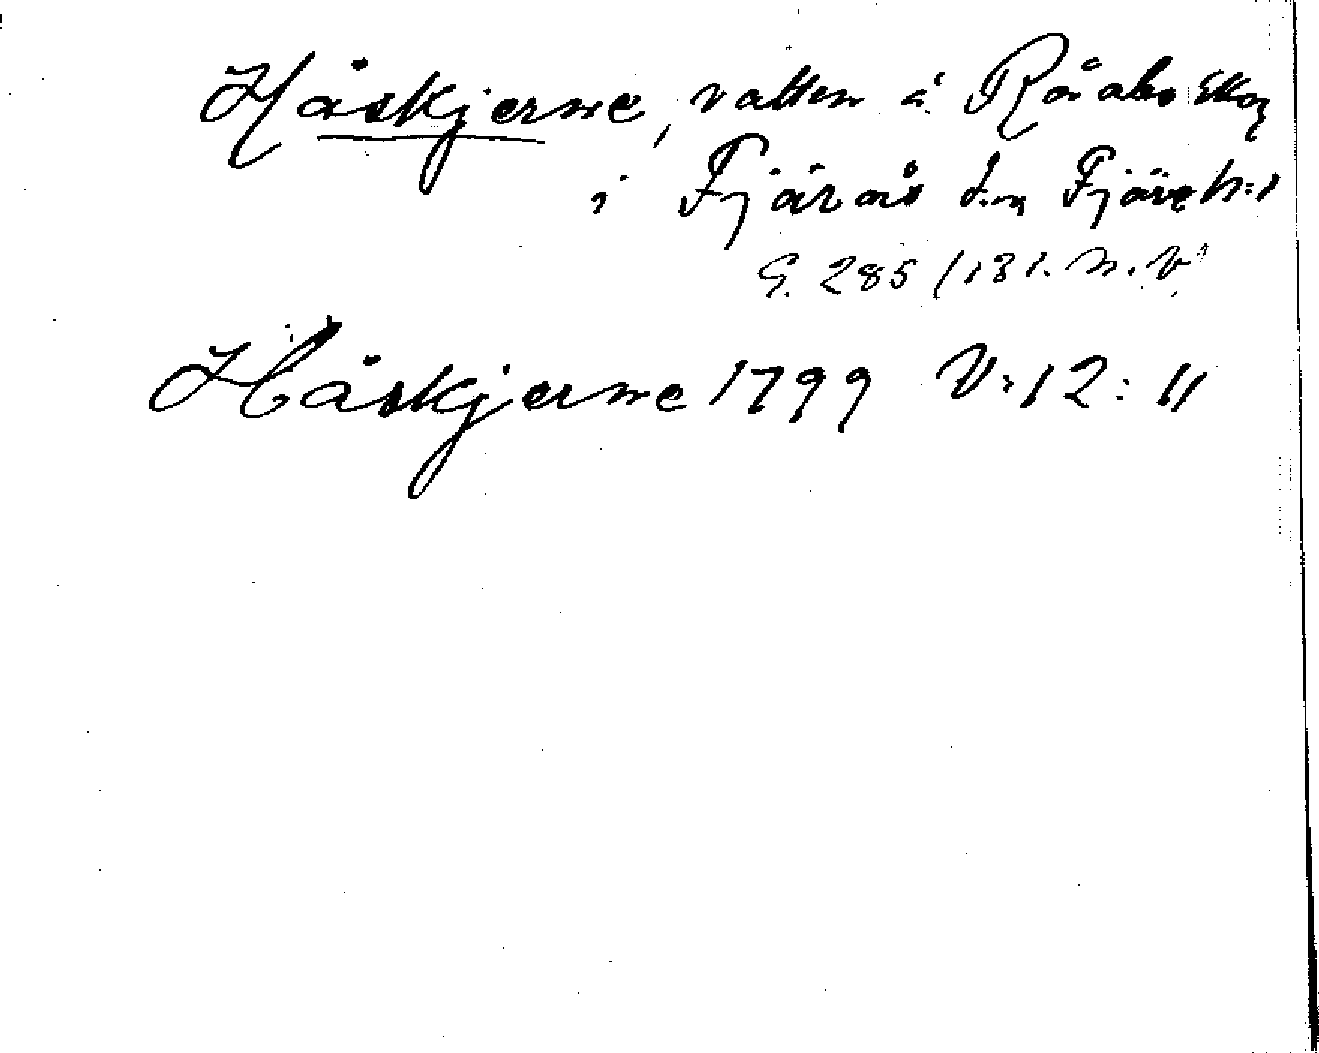 Håskjerne, vatten å Råabo skog
i Fjärås s:n Fjäre h:d
G. 285/131. n. V.
Håskjerne 1799 V:12:11